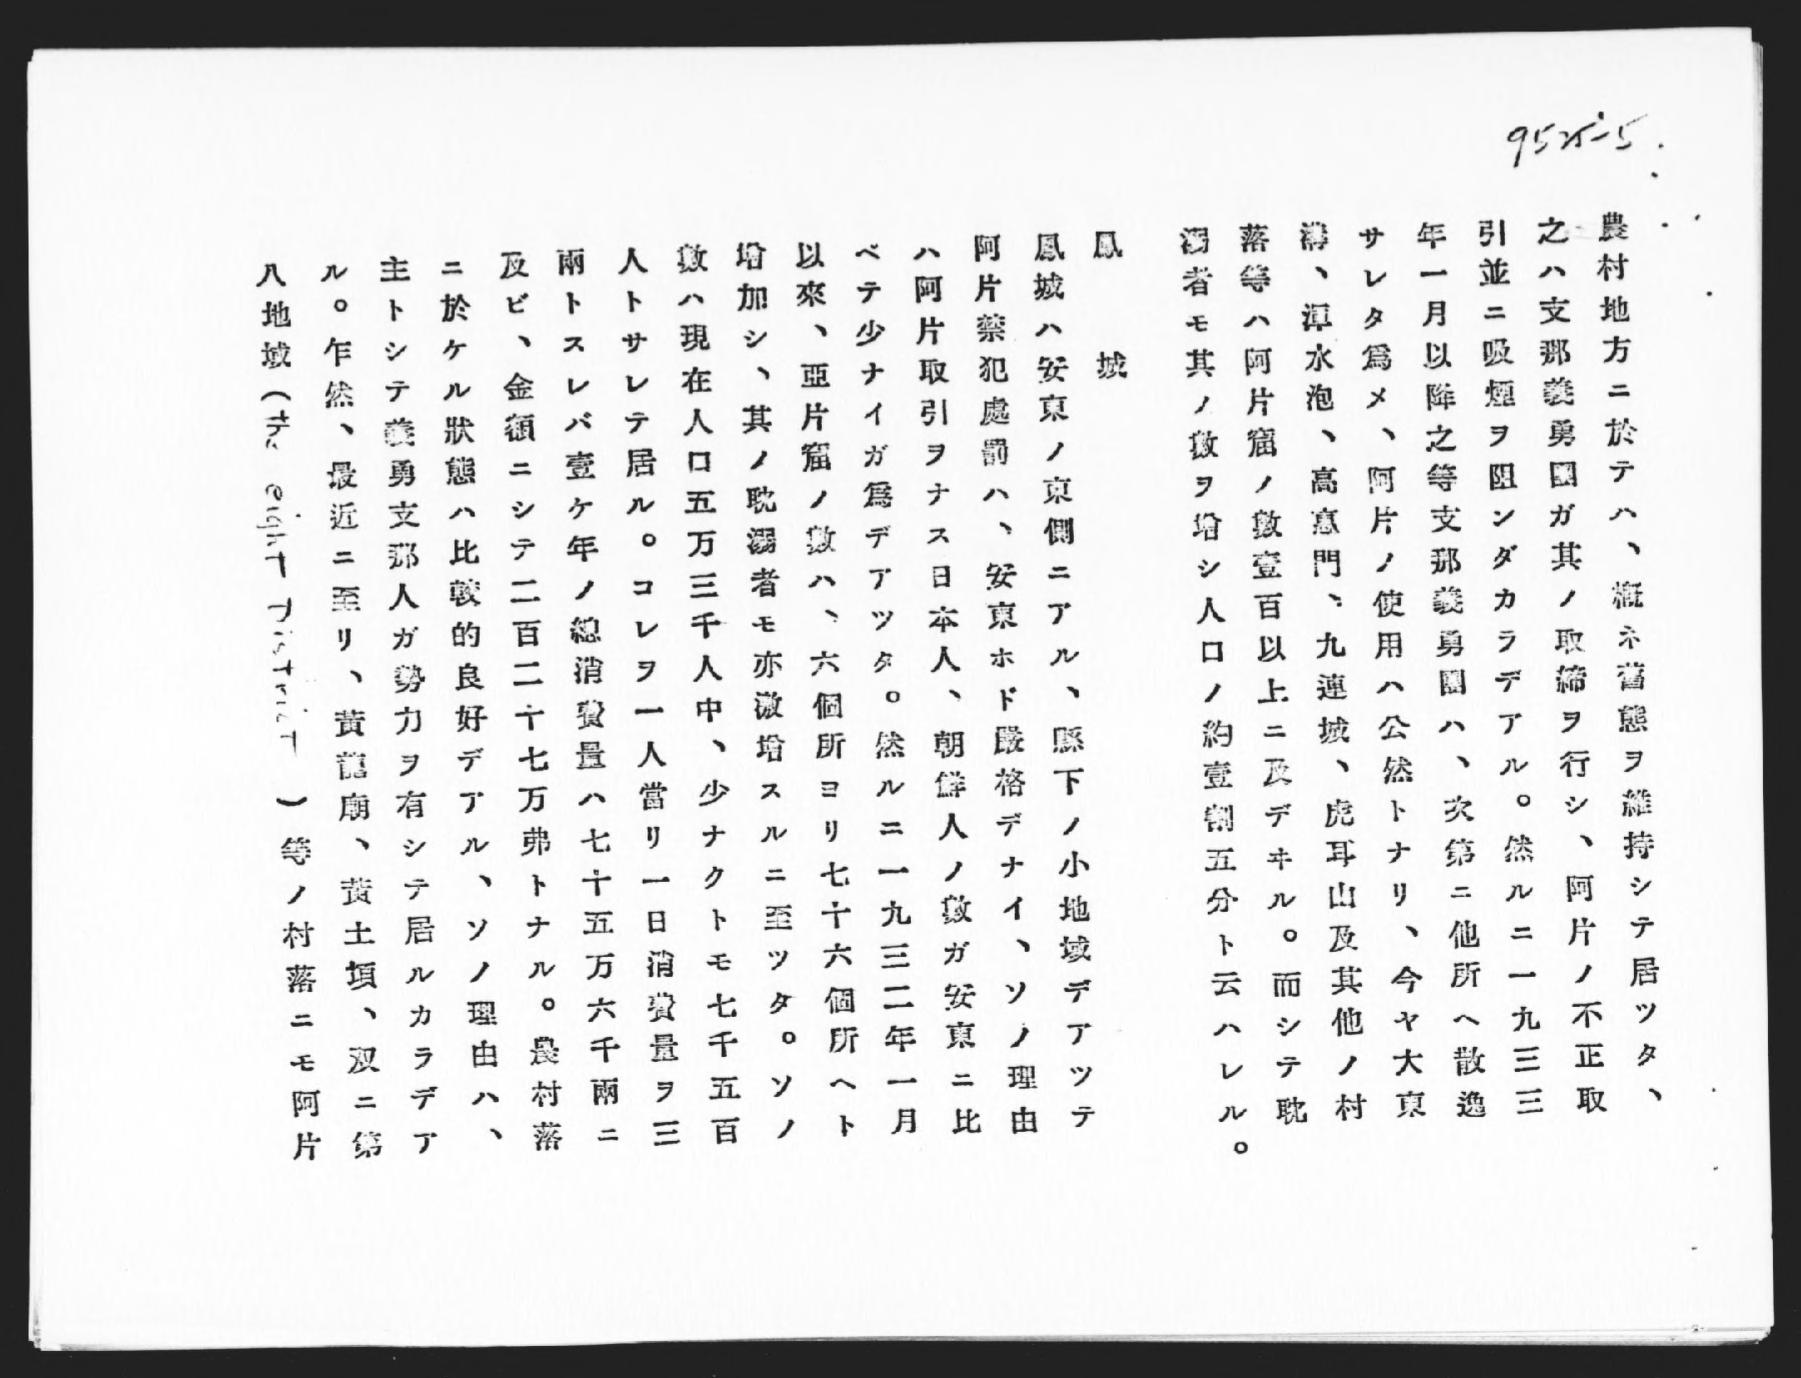 農村地方ニ於テハ、概ネ舊態ヲ維持シテ居ツタ、
之ハ支那義勇團ガ其ノ取締ヲ行シ、阿片ノ不正取
引並ニ吸煙ヲ阻ンダカラデアル。然ルニ一九三三
年一月以降之等支那義勇團ハ、次第ニ他所ヘ散逸
サレタ爲メ、阿片ノ使用ハ公然トナリ、今ヤ大東
溝、渾水泡、高麗門、九連城、虎耳山及其他ノ村
落等ハ阿片窟ノ數壹百以上ニ及デヰル。而シテ耽
溺者モ其ノ數ヲ增シ人口ノ約壹割五分ト云ハレル。
鳳城
鳳城ハ安東ノ東側ニアル、縣下ノ小地域デアツテ
阿片禁犯處罰ハ、安東ホド嚴格デナイ、ソノ理由
ハ阿片取引ヲナス日本人、朝鮮人ノ數ガ安東ニ比
ベテ少ナイガ爲デアツタ。然ルニ一九三二年一月
以來、亞片窟ノ數ハ、六個所ヨリ七十六個所ヘト
增加シ、其ノ耽溺者モ亦激增スルニ至ツタ。ソノ
數ハ現在人口五万三千人中、少ナクトモ七千五百
人トサレテ居ル。コレヲ一人當リ一日消費量ヲ三
兩トスレバ壹ケ年ノ總消費量ハ七十五万六千兩ニ
及ビ、金額ニシテ二百二十七万弗トナル。農村落
ニ於ケル狀態ハ比較的良好デアル、ソノ理由ハ、
主トシテ義勇支那人ガ勢力ヲ有シテ居ルカラデア
ル。乍然、最近ニ至リ、黃龍廟、黃土墳、双ニ第
八地域(the eight District)等ノ村落ニモ阿片